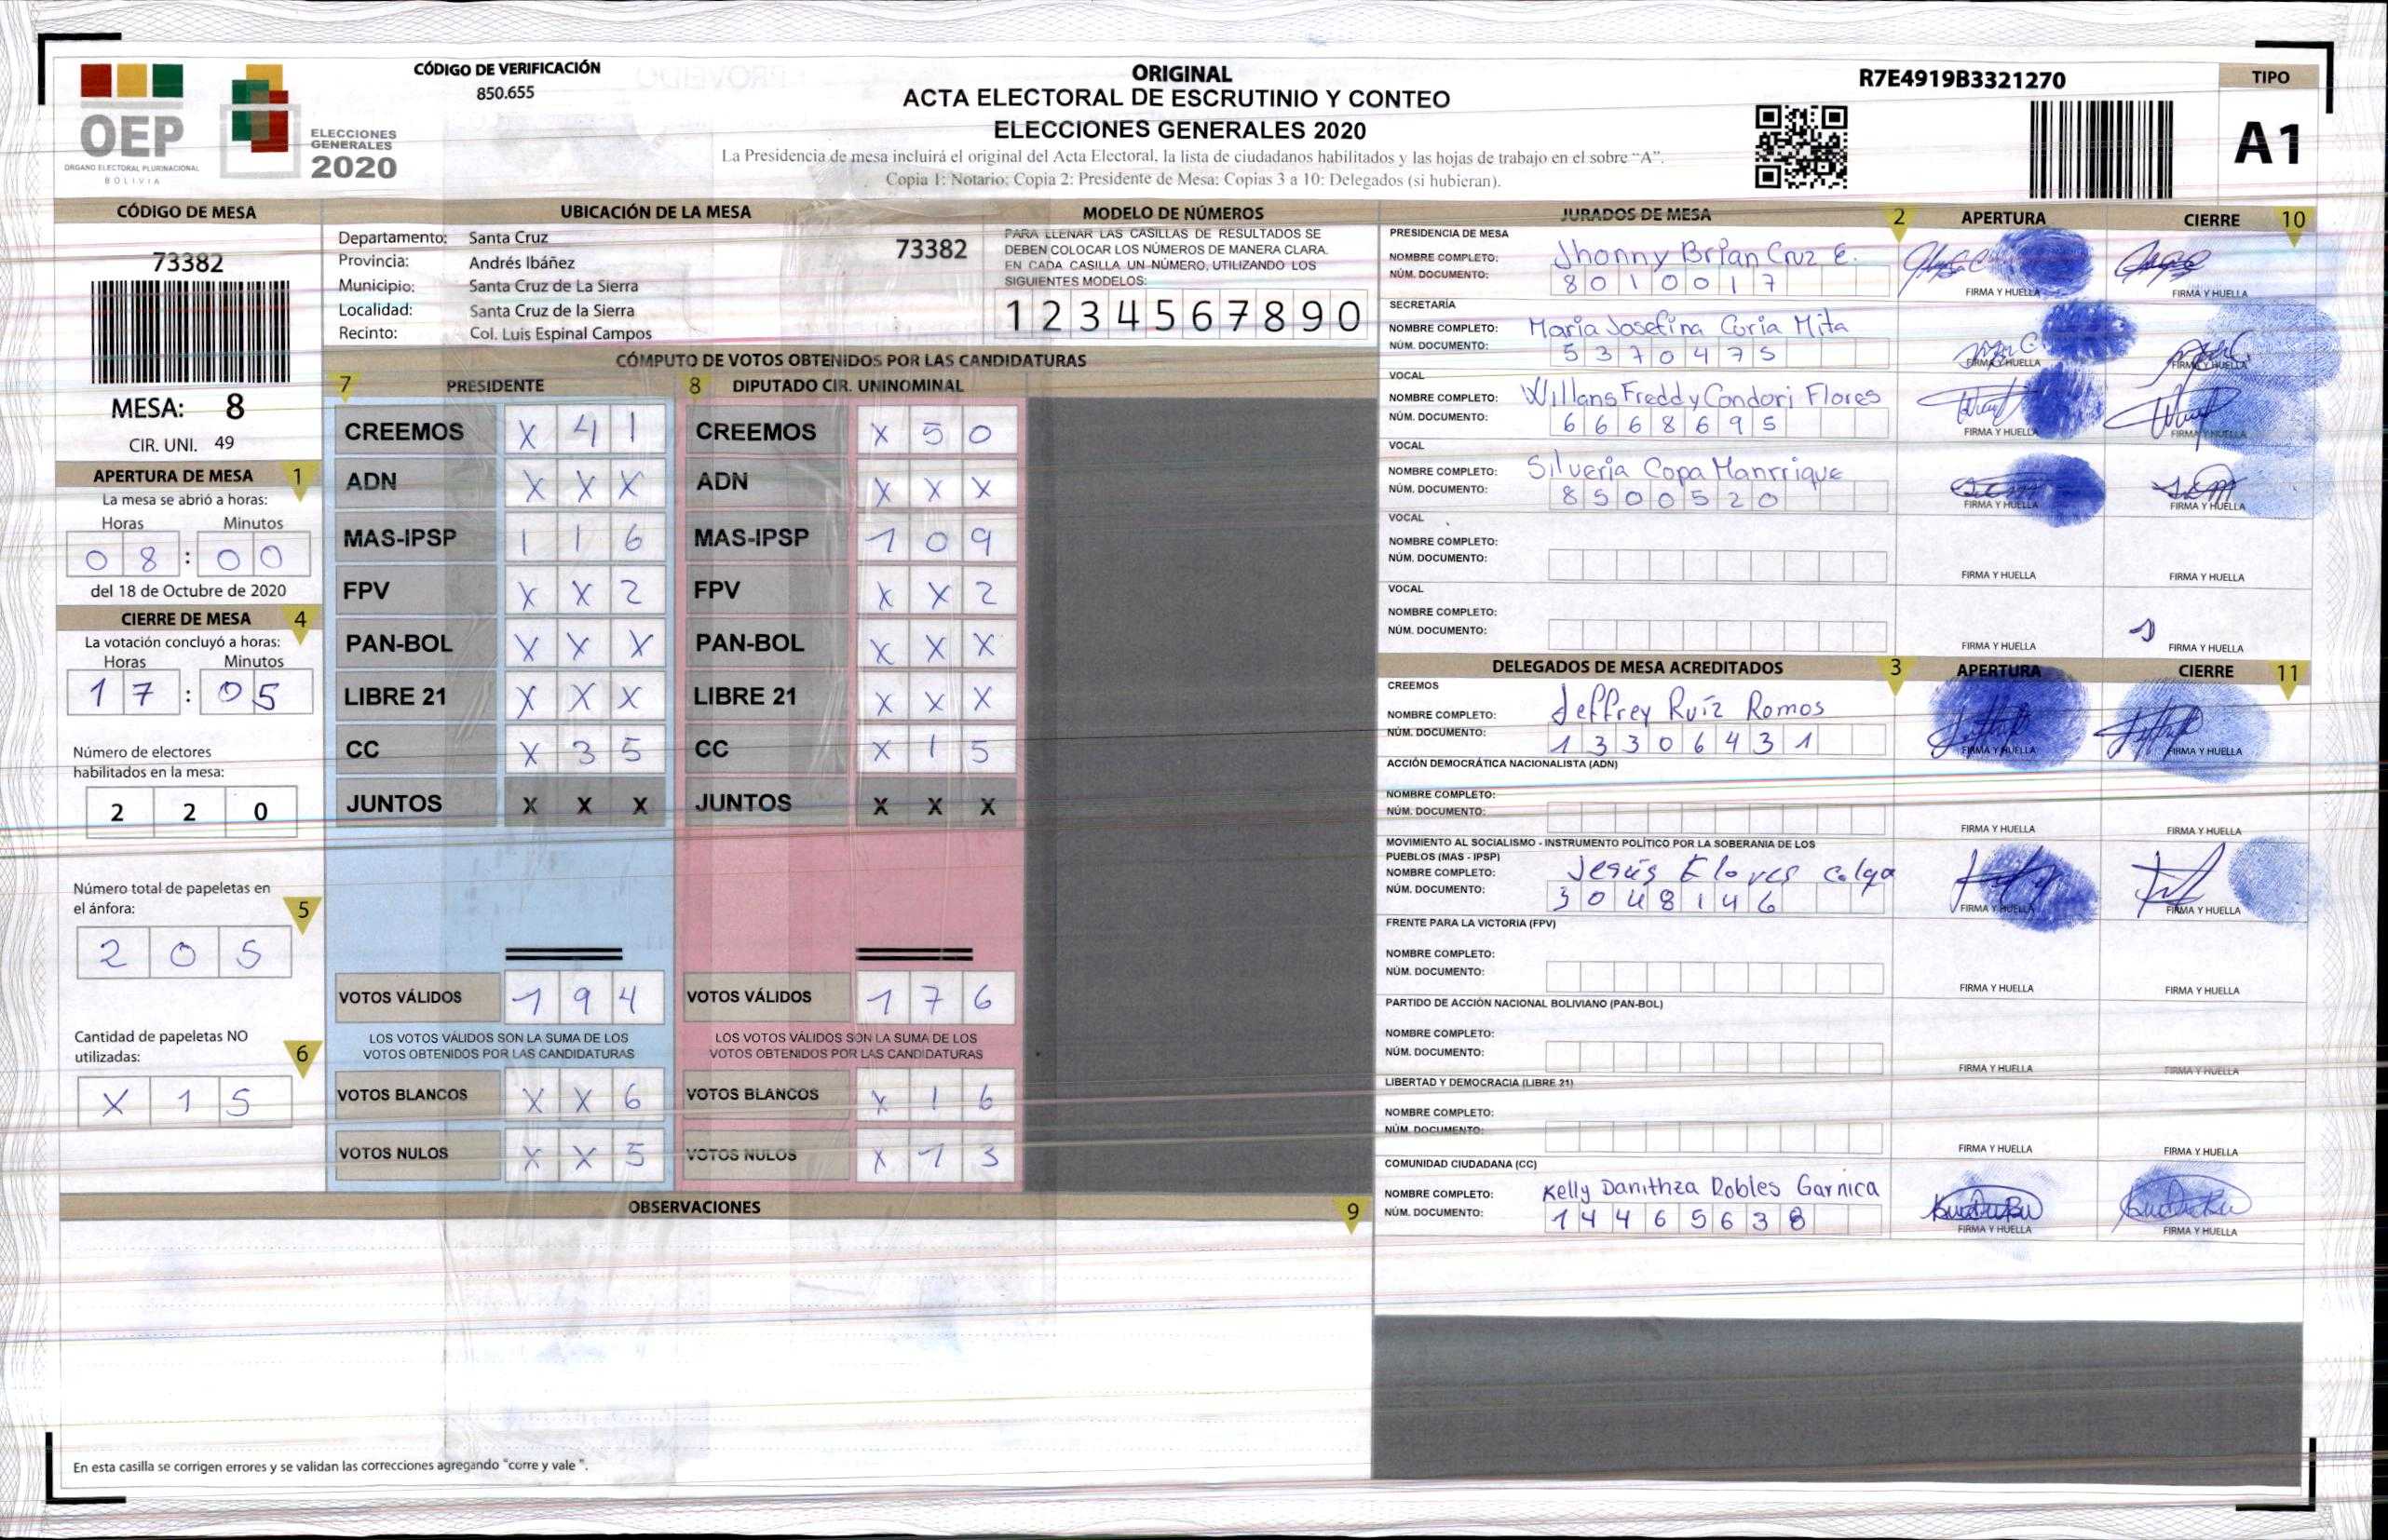 OEP
ORGANO ELECTORAL PLURINACIONAL
BOLIVIA
ELECCIONES
GENERALES
2020
CÓDIGO DE VERIFICACIÓN
850.655
ORIGINAL
ACTA ELECTORAL DE ESCRUTINIO Y CONTEO
ELECCIONES GENERALES 2020
La Presidencia de mesa incluirá el original del Acta Electoral, la lista de ciudadanos habilitados y las hojas de trabajo en el sobre "A".
Copia 1: Notario; Copia 2: Presidente de Mesa; Copias 3 a 10: Delegados (si hubieran).
R7E4919B3321270
TIPO
A1
CÓDIGO DE MESA
73382
MESA: 8
CIR. UNI. 49
APERTURA DE MESA 1
La mesa se abrió a horas:
Horas Minutos
08:00
del 18 de Octubre de 2020
CIERRE DE MESA 4
La votación concluyó a horas:
Horas Minutos
17:05
Número de electores
habilitados en la mesa:
2 2 0
Número total de papeletas en
el ánfora: 5
2 0 5
Cantidad de papeletas NO
utilizadas: 6
X 1 5
UBICACIÓN DE LA MESA
Departamento: Santa Cruz
Provincia: Andrés Ibáñez
Municipio: Santa Cruz de La Sierra
Localidad: Santa Cruz de la Sierra
Recinto: Col. Luis Espinal Campos
73382
MODELO DE NÚMEROS
PARA LLENAR LAS CASILLAS DE RESULTADOS SE
DEBEN COLOCAR LOS NÚMEROS DE MANERA CLARA.
EN CADA CASILLA UN NÚMERO, UTILIZANDO LOS
SIGUIENTES MODELOS:
1 2 3 4 5 6 7 8 9 0
CÓMPUTO DE VOTOS OBTENIDOS POR LAS CANDIDATURAS
7 PRESIDENTE 8 DIPUTADO CIR. UNINOMINAL
CREEMOS X 4 1 CREEMOS X 5 0
ADN X X X ADN X X X
MAS-IPSP 1 1 6 MAS-IPSP 1 0 9
FPV X X 2 FPV X X 2
PAN-BOL X X X PAN-BOL X X X
LIBRE 21 X X X LIBRE 21 X X X
CC X 3 5 CC X 1 5
JUNTOS X X X JUNTOS X X X
VOTOS VÁLIDOS 1 9 4 VOTOS VÁLIDOS 1 7 6
LOS VOTOS VÁLIDOS SON LA SUMA DE LOS LOS VOTOS VÁLIDOS SON LA SUMA DE LOS
VOTOS OBTENIDOS POR LAS CANDIDATURAS VOTOS OBTENIDOS POR LAS CANDIDATURAS
VOTOS BLANCOS X X 6 VOTOS BLANCOS X 1 6
VOTOS NULOS X X 5 VOTOS NULOS X 1 3
OBSERVACIONES 9
En esta casilla se corrigen errores y se validan las correcciones agregando "corre y vale".
JURADOS DE MESA 2 APERTURA CIERRE 10
PRESIDENCIA DE MESA
NOMBRE COMPLETO: Jhonny Brian Cruz E.
NÚM. DOCUMENTO: 8010017
FIRMA Y HUELLA FIRMA Y HUELLA
SECRETARÍA
NOMBRE COMPLETO: Maria Josefina Coria Mita
NÚM. DOCUMENTO: 5370475
FIRMA Y HUELLA FIRMA Y HUELLA
VOCAL
NOMBRE COMPLETO: Willans Freddy Condori Flores
NÚM. DOCUMENTO: 6668695
FIRMA Y HUELLA FIRMA Y HUELLA
VOCAL
NOMBRE COMPLETO: Silveria Copa Manrrique
NÚM. DOCUMENTO: 8500520
FIRMA Y HUELLA FIRMA Y HUELLA
VOCAL
NOMBRE COMPLETO:
NÚM. DOCUMENTO:
FIRMA Y HUELLA FIRMA Y HUELLA
VOCAL
NOMBRE COMPLETO:
NÚM. DOCUMENTO:
FIRMA Y HUELLA FIRMA Y HUELLA
DELEGADOS DE MESA ACREDITADOS 3 APERTURA CIERRE 11
CREEMOS
NOMBRE COMPLETO: Jeffrey Ruíz Ramos
NÚM. DOCUMENTO: 13306431
FIRMA Y HUELLA FIRMA Y HUELLA
ACCIÓN DEMOCRÁTICA NACIONALISTA (ADN)
NOMBRE COMPLETO:
NÚM. DOCUMENTO:
FIRMA Y HUELLA FIRMA Y HUELLA
MOVIMIENTO AL SOCIALISMO - INSTRUMENTO POLÍTICO POR LA SOBERANIA DE LOS
PUEBLOS (MAS - IPSP)
NOMBRE COMPLETO: Jesús Flores
NÚM. DOCUMENTO: 3048146
FIRMA Y HUELLA FIRMA Y HUELLA
FRENTE PARA LA VICTORIA (FPV)
NOMBRE COMPLETO:
NÚM. DOCUMENTO:
FIRMA Y HUELLA FIRMA Y HUELLA
PARTIDO DE ACCIÓN NACIONAL BOLIVIANO (PAN-BOL)
NOMBRE COMPLETO:
NÚM. DOCUMENTO:
FIRMA Y HUELLA FIRMA Y HUELLA
LIBERTAD Y DEMOCRACIA (LIBRE 21)
NOMBRE COMPLETO:
NÚM. DOCUMENTO:
FIRMA Y HUELLA FIRMA Y HUELLA
COMUNIDAD CIUDADANA (CC)
NOMBRE COMPLETO: Kelly Danithza Robles Garnica
NÚM. DOCUMENTO: 14465638
FIRMA Y HUELLA FIRMA Y HUELLA